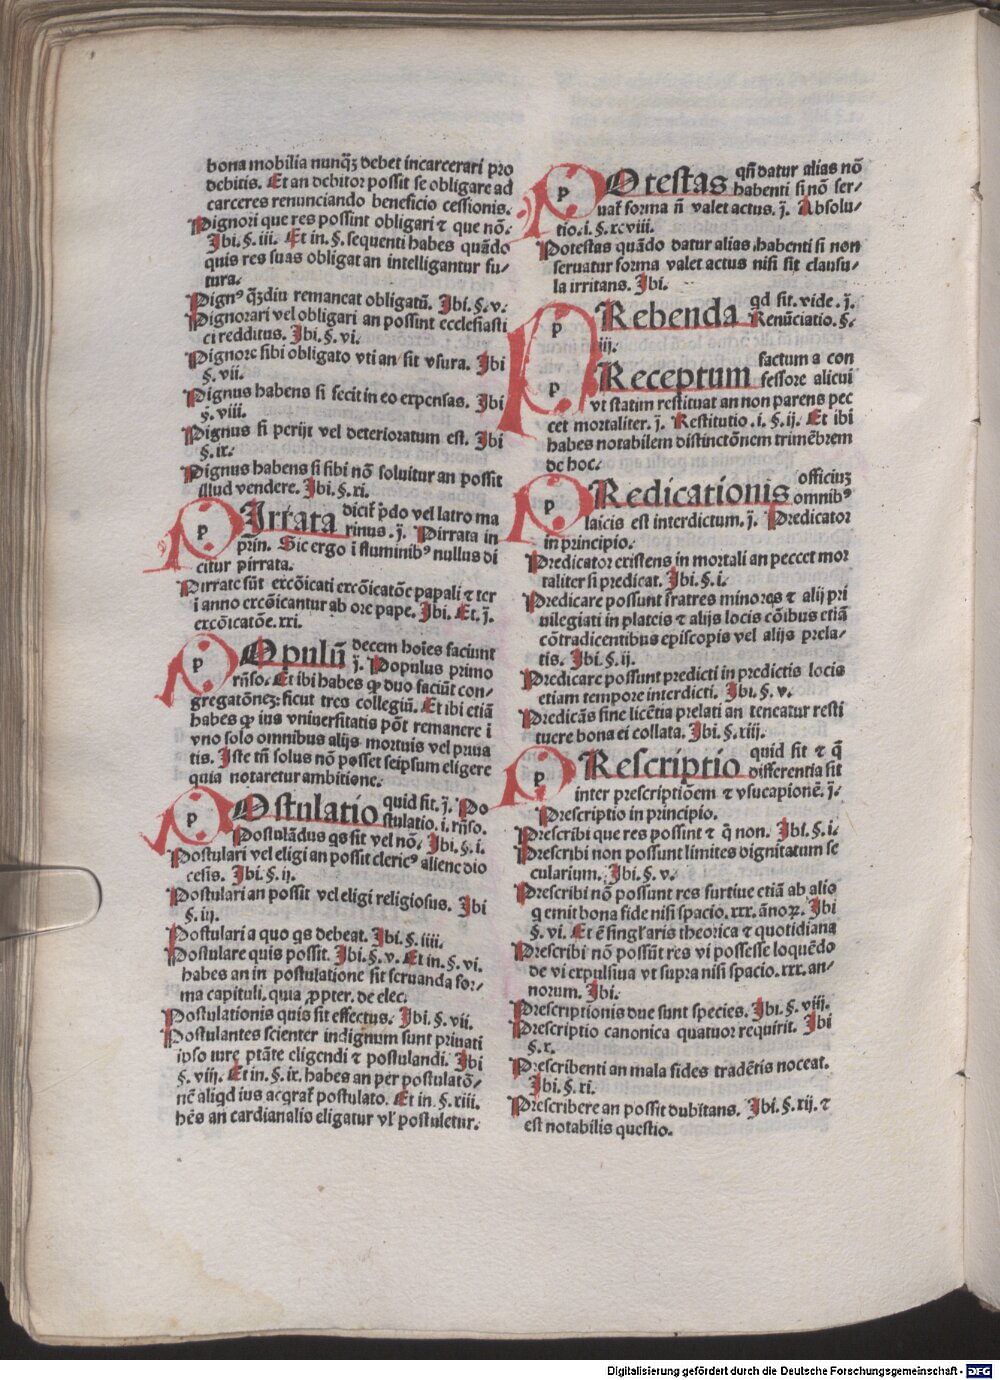 bona mobilia nunqꝫ debet incarcerari pro
debitis. Et an debitor possit se obligare ad
carceres renunciando beneficio cessionis.
Pignori que res possint obligari ⁊ que nō.
Ibi. §. iii. Et in. §. sequenti habes quādo
quis res suas obligat an intelligantur fu/
tura.
Pignꝰ qꝫdiu remaneat obligatū. Ibi. §. v.
Pignorari vel obligari an possint ecclesiasti
ci redditus. Ibi. §. vi.
Pignore sibi obligato vti an sit vsura. Ibi
§. vii.
Pignus habens si fecit in eo expensas. Ibi
§. viii.
Pignus si perijt vel deterioratum est. Ibi
§. ix.
Pignus habens si sibi nō soluitur an possit
illud vendere. Ibi. §. xi.
p Irrata dicit̄ p̄do vel latro ma
rinus. j. Pirrata in
prin. Sic ergo ī fluminibꝰ nullus di
citur pirrata.
Pirrate sūt excōicati excōicatōe papali ⁊ ter
i anno excōicantur ab ore pape. Ibi. Et. j.
excōicatōe. xxi.
p Opulū decem hoīes faciunt
j. Populus primo
rn̄so. Et ibi habes ꝙ duo faciūt con/
gregatōneꝫ: sicut tres collegiū. Et ibi etiā
habes ꝙ ius vniuersitatis pōt remanere ī
vno solo omnibus alijs mortuis vel priua
tis. Iste tn̄ solus nō posset seipsum eligere
quia notaretur ambitione.
p Ostulatio quid sit. j. Po
stulatio. i. rn̄so.
Postulādus qs sit vel nō. Ibi. §. i.
Postulari vel eligi an possit clericꝰ aliene dio
cesis. Ibi. §. ij.
Postulari an possit vel eligi religiosus. Ibi
§. iij.
Postulari a quo qs debeat. Ibi. §. iiii.
Postulare quis possit. Ibi. §. v. Et in. §. vi.
habes an in postulatione sit seruanda for/
ma capituli. quia ꝓpter. de elec.
Postulationis quis sit effectus. Ibi. §. vii.
Postulantes scienter indignum sunt priuati
ipso iure ptāte eligendi ⁊ postulandi. Ibi
§. viij. Et in. §. ix. habes an per postulatō/
nē aliqd ius acqrat̄ postulato. Et in. §. xiii.
hēs an cardianalis eligatur vl̄ postuletur.
p Otestas qn̄ datur alias nō
habenti si nō ser/
uat̄ forma n̄ valet actus. j. Absolu/
tio. i. §. xcviii.
Potestas quādo datur alias habenti si non
seruatur forma valet actus nisi sit clausu/
la irritans. Ibi.
p Rebenda qd sit. vide. j.
Renūciatio. §.
iij.
p Receptum factum a con
fessore alicui
vt statim restituat an non parens pec
cet mortaliter. j. Restitutio. i. §. ij. Et ibi
habes notabilem distinctōnem trimēbrem
de hoc.
p Redicationis officiuꝫ
omnibꝰ
laicis est interdictum. j. Predicator
in principio.
Predicator existens in mortali an peccet mor
taliter si predicat. Ibi. §. i.
Predicare possunt fratres minores ⁊ alij pri
uilegiati in plateis ⁊ alijs locis cōibus etiā
cōtradicentibus episcopis vel alijs prela/
tis. Ibi. §. ij.
Predicare possunt predicti in predictis locis
etiam tempore interdicti. Ibi. §. v.
Predicās sine licētia prelati an teneatur resti
tuere bona ei collata. Ibi. §. xiij.
p Rescriptio quid sit ⁊ q̄
differentia sit
inter prescriptiōem ⁊ vsucapionē. j.
Prescriptio in principio.
Prescribi que res possint ⁊ q̄ non. Ibi. §. i.
Prescribi non possunt limites dignitatum se
cularium. Ibi. §. v.
Prescribi nō possunt res furtiue etiā ab alio
q emit bona fide nisi spacio. xxx. ānoꝝ. Ibi
§. vi. Et ē singl̄aris theorica ⁊ quotidiana
Prescribi nō possūt res vi possesse loquēdo
de vi expulsiua vt supra nisi spacio. xxx. an/
norum. Ibi.
Prescriptionis due sunt species. Ibi. §. viij.
Prescriptio canonica quatuor requirit. Ibi
§. x.
Prescribenti an mala fides tradētis noceat.
Ibi. §. xi.
Prescribere an possit dubitans. Ibi. §. xij. ⁊
est notabilis questio.
Digitalisierung gefördert durch die Deutsche Forschungsgemeinschaft - DFG